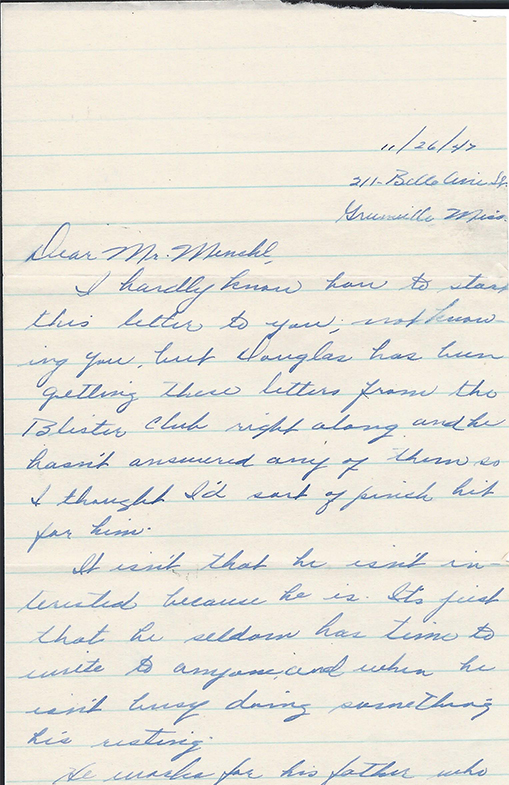 11/26/47
211- Belle Aire St.
Greenville Miss.
Dear Mr. Menshl,
I hardly know how to start
this letter to you, not know-
ing you, but Douglas has been
getting these letters from the
Blister Club right along and he
hasn't answered any of them so
I thought I'd sort of pinch hit
for him.
It isn't that he isn't in-
terested because he is. It's just
that he seldom has time to
write to anyone, and when he
isn't busy doing something
his resting.
He works for his father who